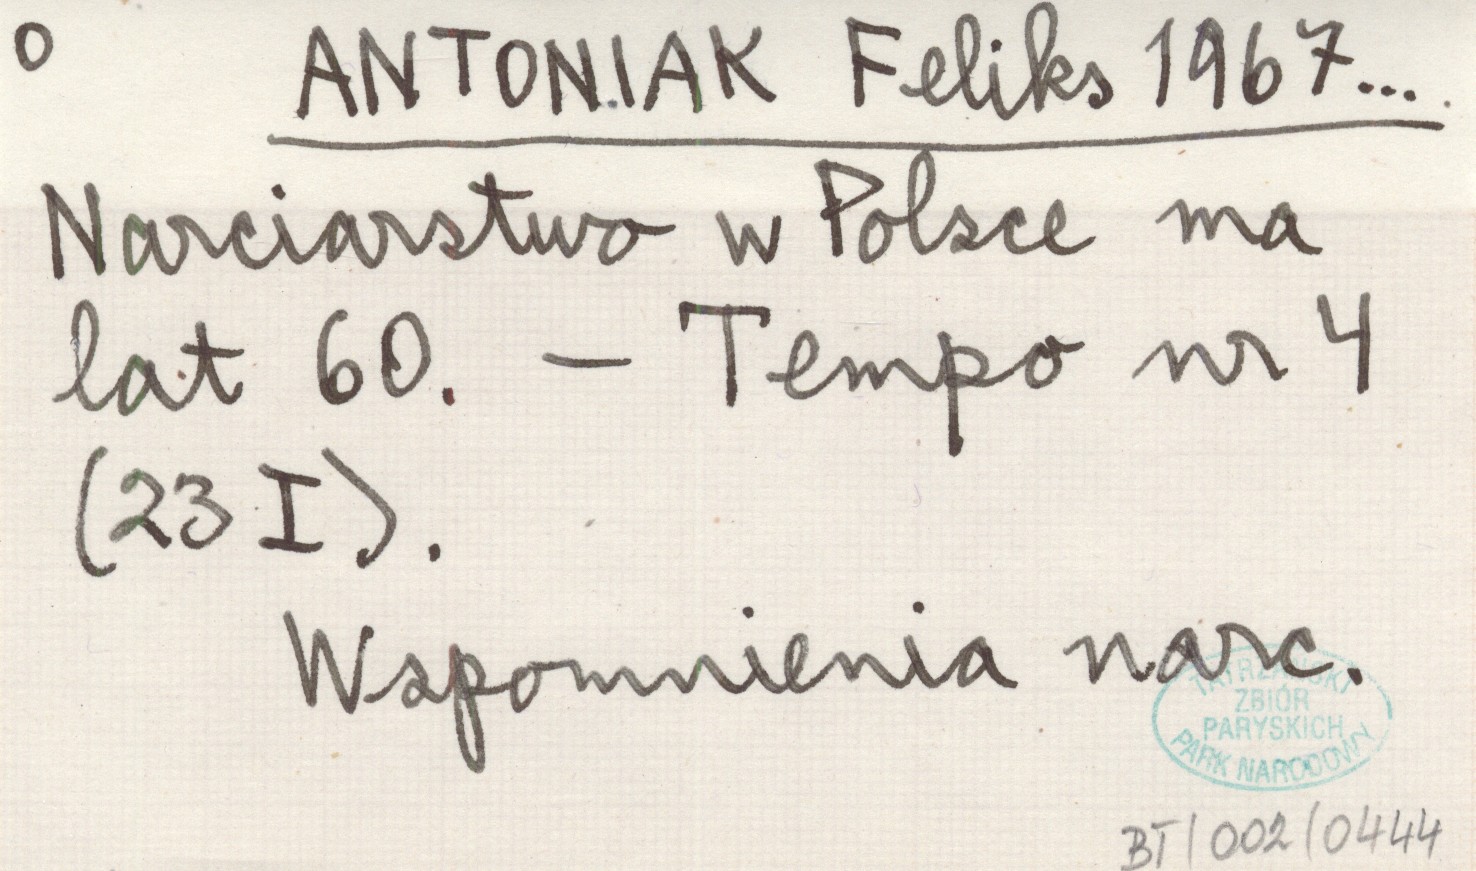 o ANTONIAK Feliks 1967...
Narciarstwo w Polsce ma
lat 60. — Tempo nr 4
(23 I).
Wspomnienia narc.
TATRZAŃSKI
ZBIÓR
PARYSKICH
PARK NARODOWY
BT/002/0444